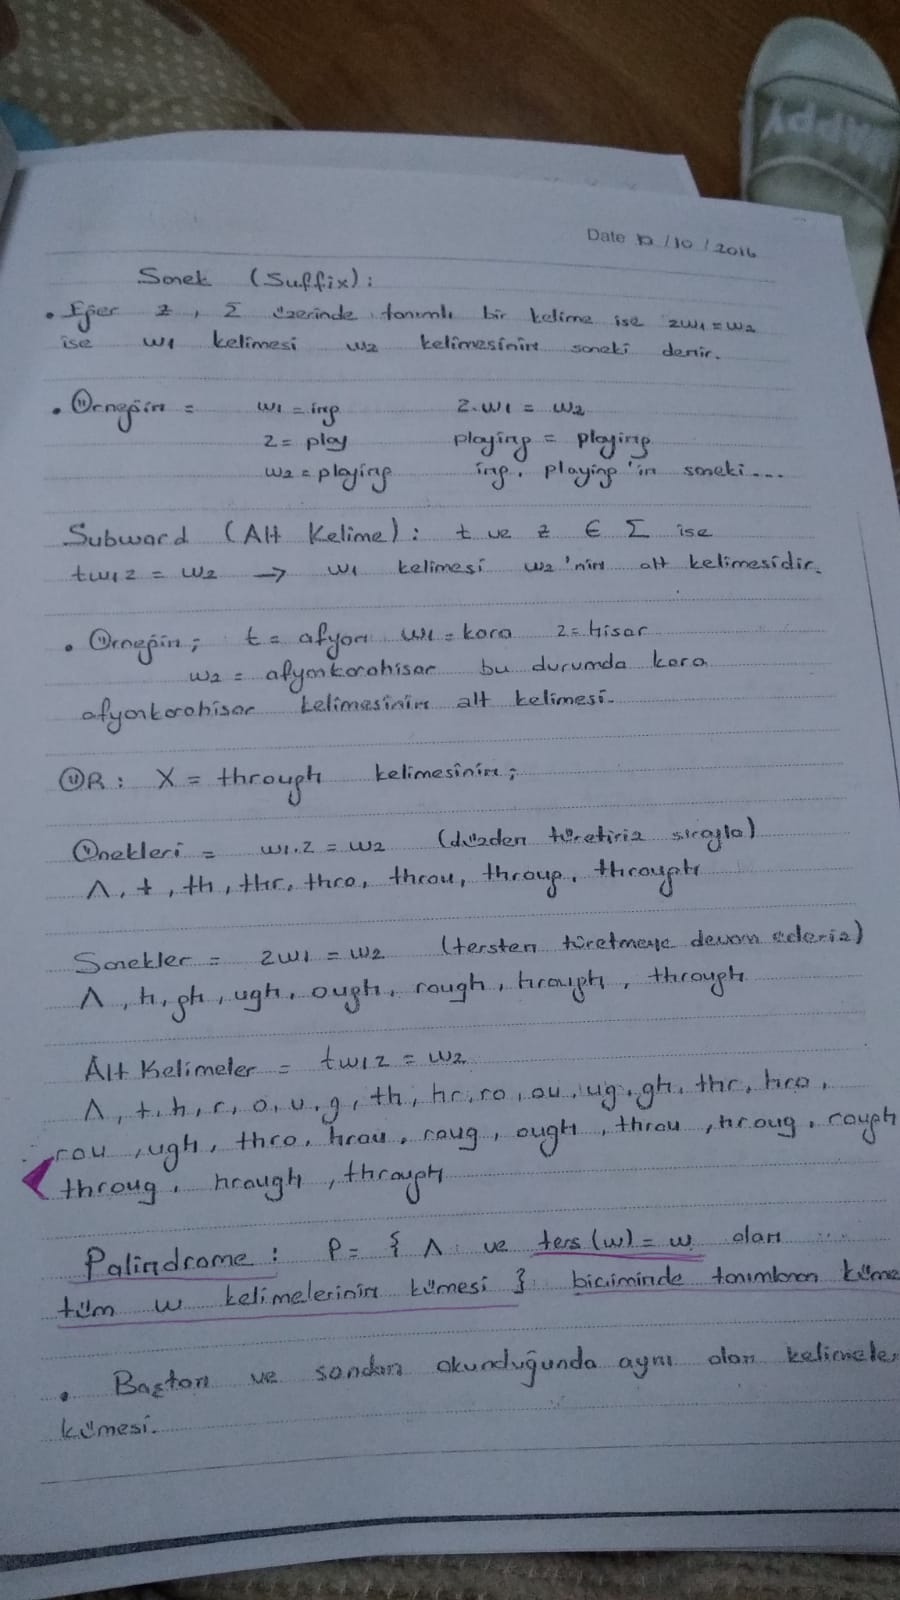 HAPPY
Date 12/10/2016
Sonek (Suffix):
• Eğer z, Σ üzerinde tanımlı bir kelime ise zw1=w2
ise w1 kelimesi w2 kelimesinin soneki denir.
• Örneğin = w1 = ing z.w1 = w2
z = play playing = playing
w2 = playing ing, playing'in soneki...
Subward (Alt Kelime): t ve z ∈ Σ ise
tw1z = w2 → w1 kelimesi w2'nin alt kelimesidir.
• Örneğin; t = afyon w1 = kara z = hisar
w2 = afyonkarahisar bu durumda kara
afyonkarahisar kelimesinin alt kelimesi.
ÖR: X = through kelimesinin;
Önekleri = w1.z = w2 (düzden türetiriz sırayla)
Λ, t, th, thr, thro, throu, throug, through
Sonekler = zw1 = w2 (tersten türetmeye devam ederiz)
Λ, h, gh, ugh, ough, rough, hrough, through
Alt Kelimeler = tw1z = w2
Λ, t, h, r, o, u, g, th, hr, ro, ou, ug, gh, thr, hro,
rou, ugh, thro, hrou, roug, ough, throu, hroug, rough
throug, hrough, through
Palindrome: P = { Λ ve ters(w) = w olan ...
tüm w kelimelerinin kümesi } biçiminde tanımlanan küme
• Baştan ve sondan okunduğunda aynı olan kelimeler
kümesi.